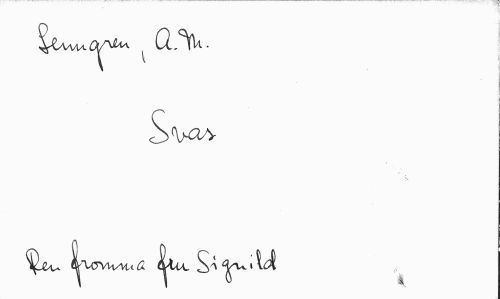 Lenngren, A.M.
Svas
Den fromma fru Signild